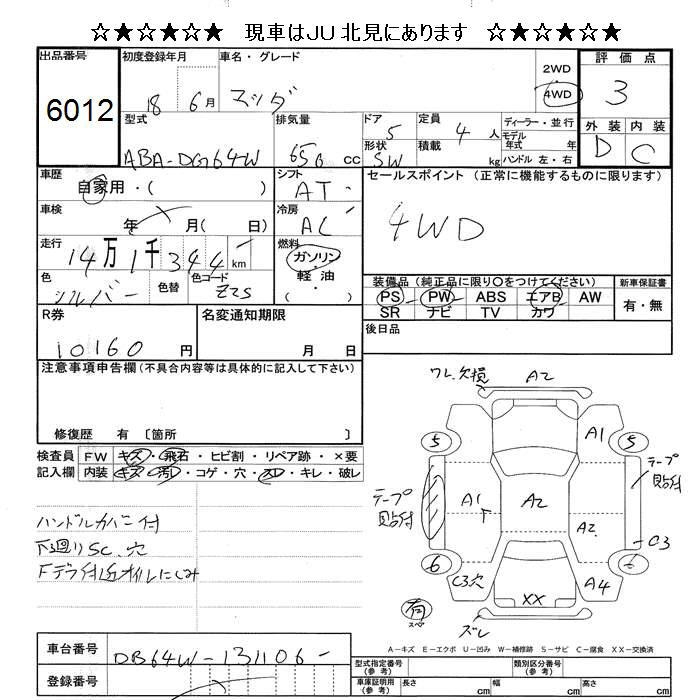 ☆★☆★☆★ 現車はJU北見にあります ☆★☆★☆★
出品番号 初度登録年月 車名・グレード 2WD 4WD 評価点
6012 18 6月 マツダ 3
型式 排気量 ドア 定員 ディーラー・並行 外装 内装
ABA-DG64W 650 cc 5 4人 モデル年式 年 D C
形状 積載 ハンドル 左・右
SW kg
車歴 シフト セールスポイント (正常に機能するものに限ります)
自家用・( ) AT
車検 冷房 4WD
年 月( 日) AC
走行 燃料
14万1千344 km ガソリン
軽・油
( )
色 色替 色コード
シルバー Z2S
装備品 (純正品に限り〇をつけてください) 新車保証書
PS PW ABS エアB AW 有・無
SR ナビ TV カワ
R券 名変通知期限 後日品
10160 円 月 日
注意事項申告欄 (不具合内容等は具体的に記入して下さい)
修復歴 有 〔箇所 〕
検査員 FW キズ・飛石・ヒビ割・リペア跡・×要
記入欄 内装 キズ・汚レ・コゲ・穴・スレ・キレ・破レ
ハンドルカバー付
下廻りSC、穴
Fデフ付近オイルにじみ
ワレ、欠損 A2
A1
5 5
テープ貼付 A1 A2 テープ貼付
A2
C3
6 6
C3穴 A4
XX
有 スペ
ズレ
A-キズ E-エクボ U-凹み W-補修跡 S-サビ C-腐食 XX-交換済
車台番号 DG64W-131106
登録番号
型式指定番号 (参考) 類別区分番号 (参考)
車庫証明用 (参考) 長さ cm 幅 cm 高さ cm